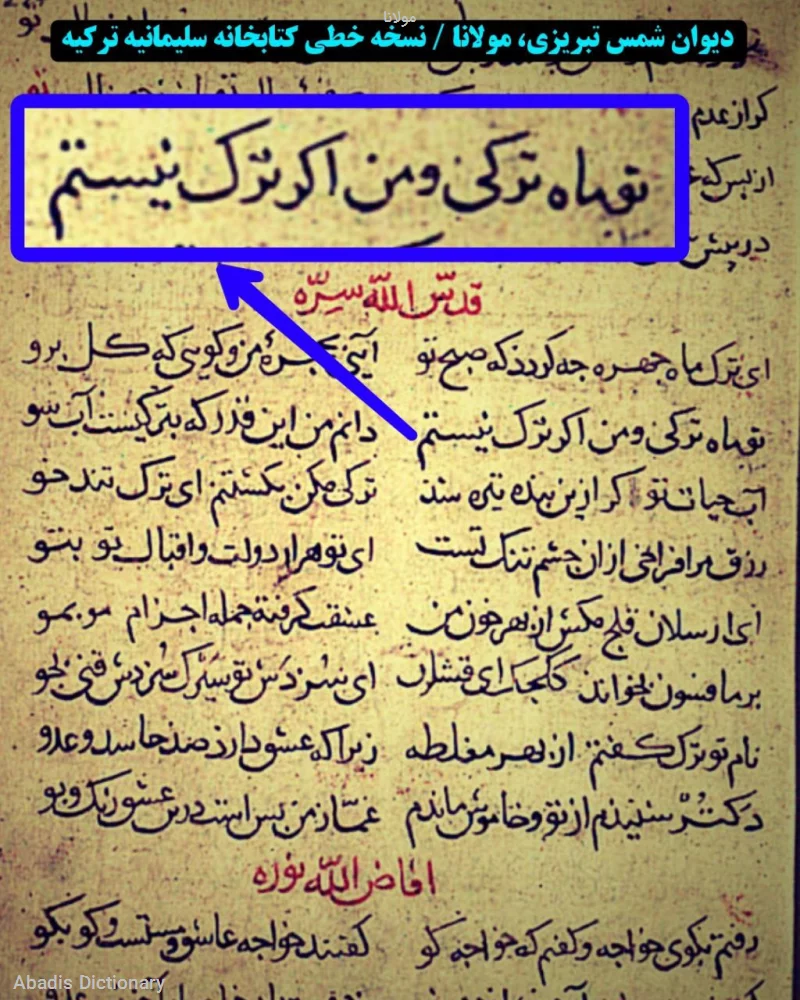 مولانا
دیوان شمس تبریزی، مولانا / نسخه خطی کتابخانه سلیمانیه ترکیه
کر از عدم
تو ماه ترکی و من اکر ترک نیستم
قدّس اللّه سِرّه
ای ترک ماه چهره چه کردد که صبح تو آیی بحجرهٔ من و کویی که کل برو
تو ماه ترکی و من اکر ترک نیستم دانم من این قدر که بترکیست آب سو
آب حیات تو کر ازین بنده تیره شد ترکی مکن بکشتنم ای ترک تند خو
رزق مرا فراخی از آن چشم تنک تست ای تو هزار دولت و اقبال تو بتو
ای ارسلان قلج مکش از بهر خون من عشقت کرفته جمله اجزام مو بمو
بر ما فسون بخواند ککجک ای قشلرن ای سزدش تو سیرک سزدش قنی بجو
نام تو ترک کفتم از بهر مغلطه زیرا که عشق دارد صد حاسد و عدو
دکتر شنیدم از تو و خاموش ماندم غمّاز من بس است درین عشق رنک و بو
افاض اللّه نوره
رفتم بکوی خواجه و کفتم که خواجه کو کفتند خواجه عاشق و مستست و کو بکو
Abadis Dictionary